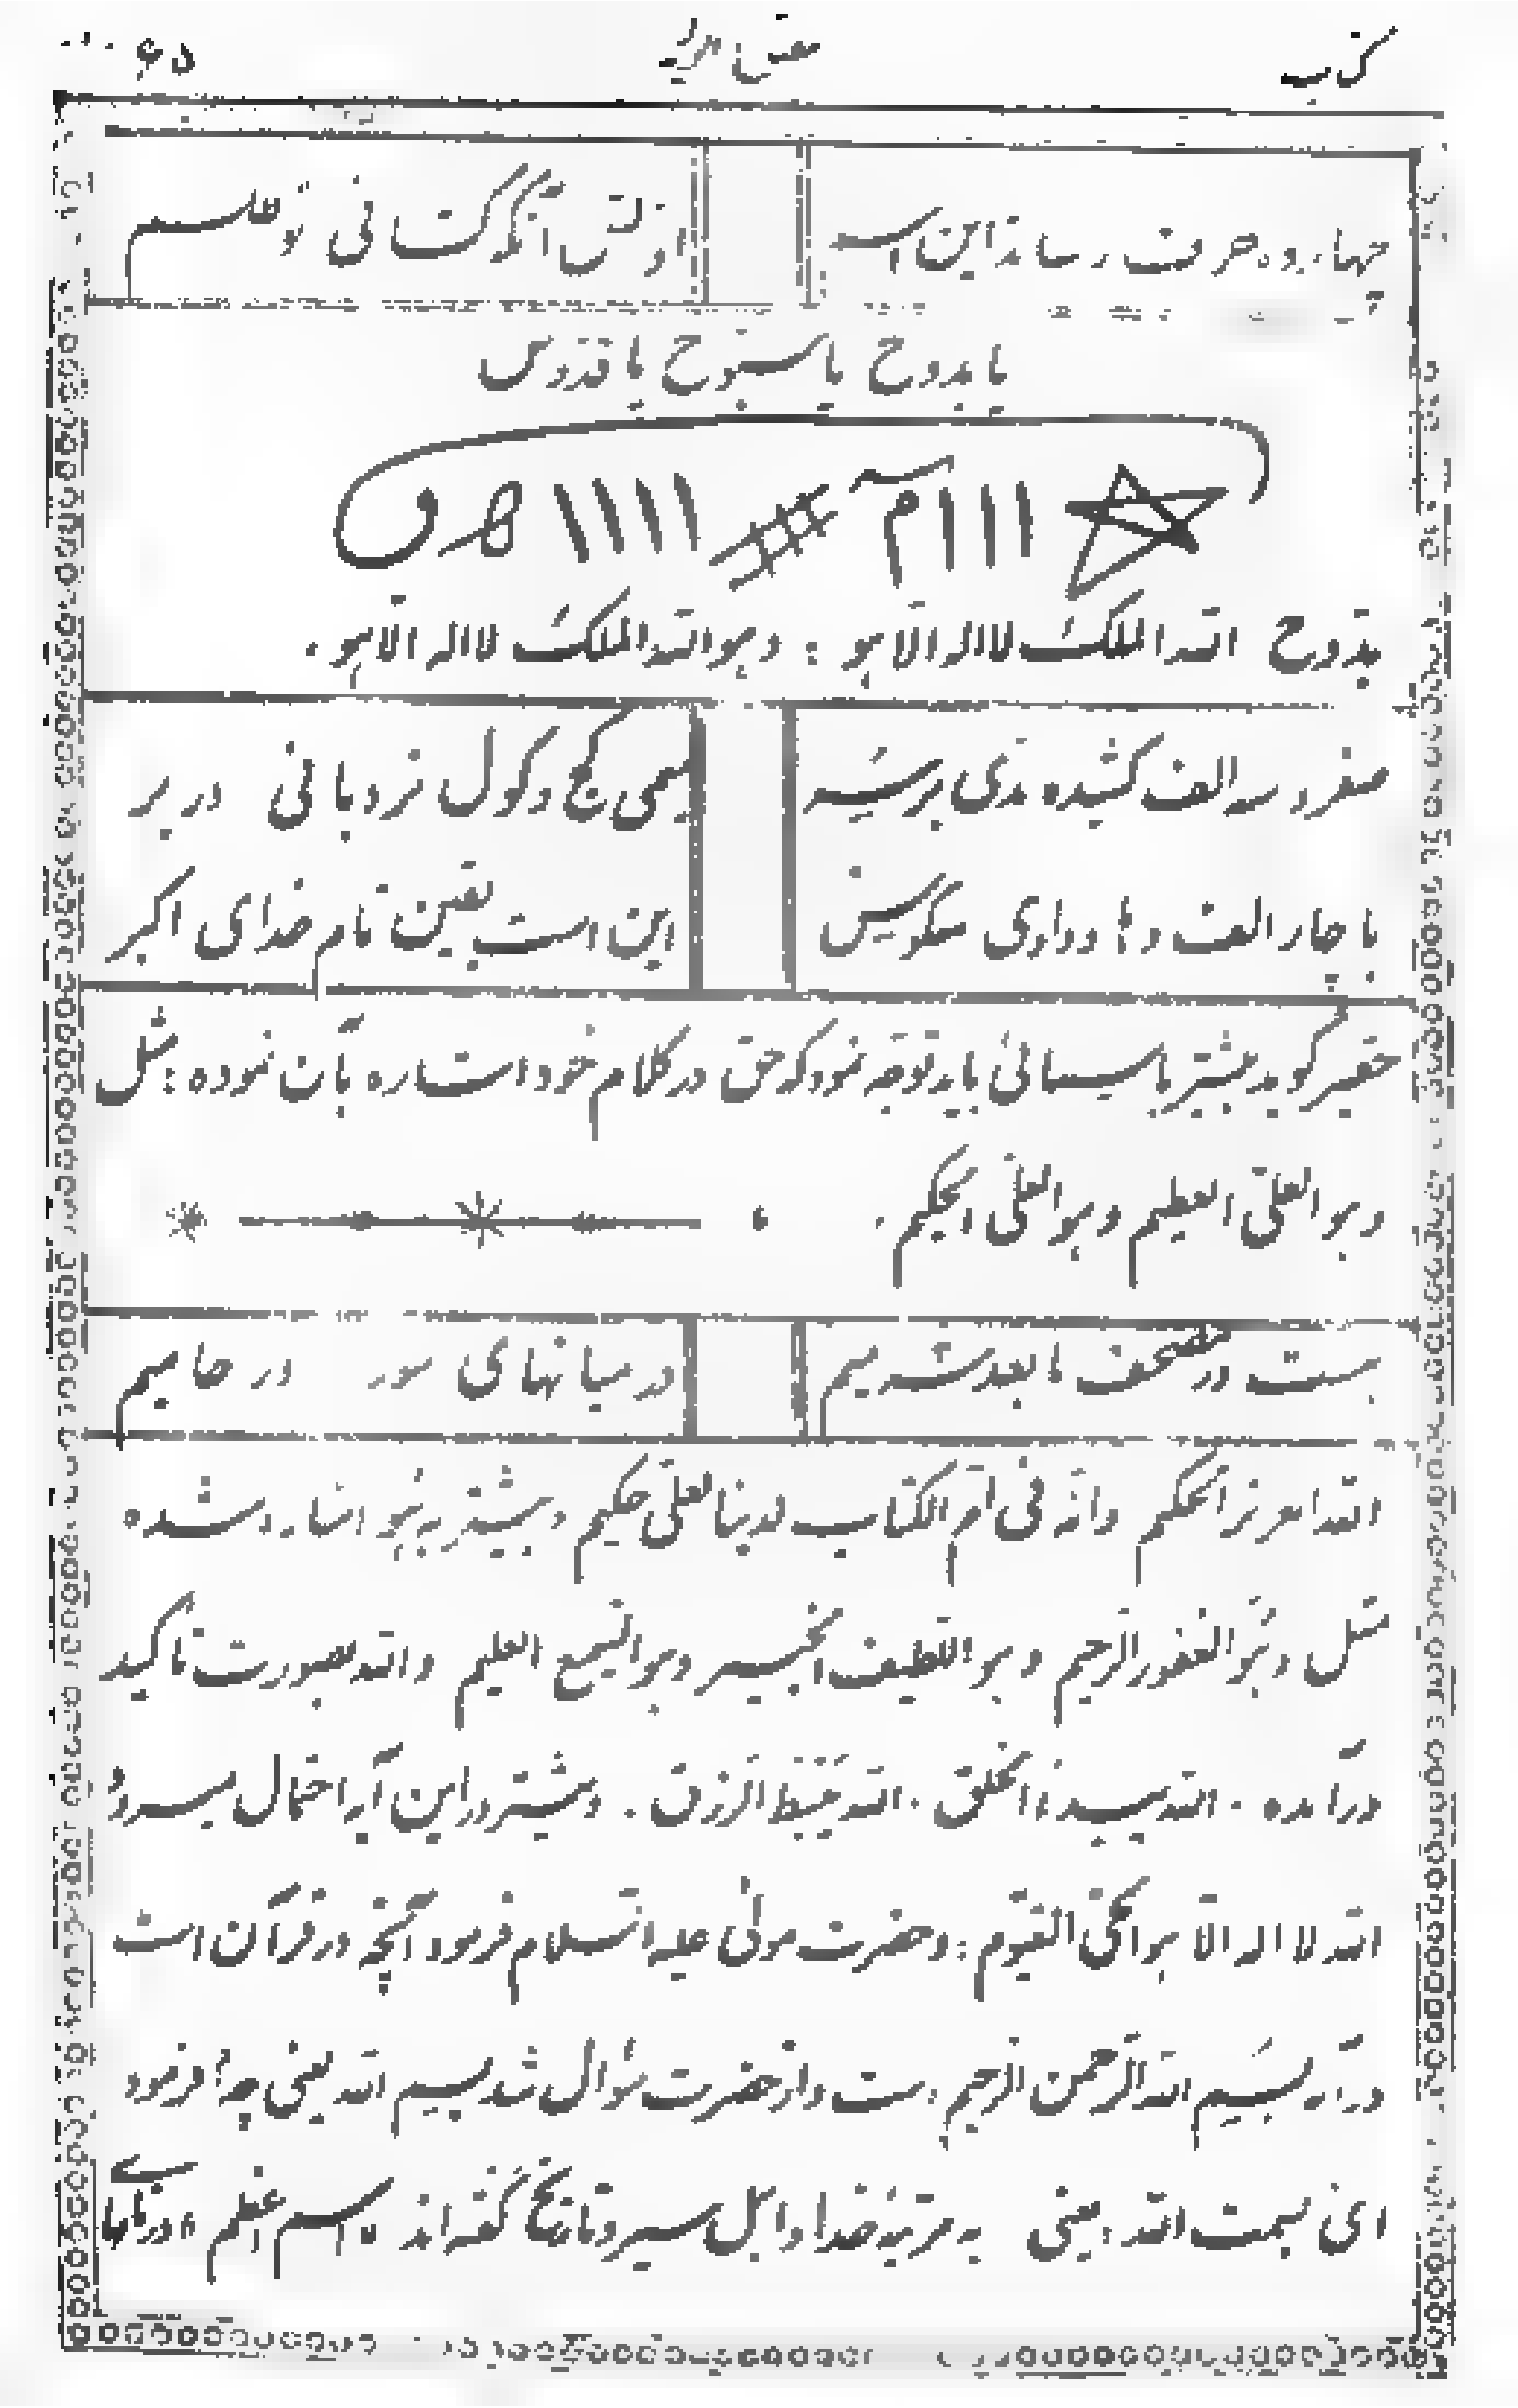 کتاب
۶۵
چهارده حرف رساند این اسم از نقش انگشتانی تو طلسم
یا بدوح یا سبوح یا قدوس
بدوح الله الملک لا اله الا هو : و هو الله الملک لا اله الا هو .
صفر و سه الف کشیده مدی بر سه میمی کج و کول نردبانی در بر
با چار الف و ها و واوی معکوس این است یقین نام خدای اکبر
حقیر گوید بیشتر با سیمائی باید توجه نمود که حق در کلام خود اشاره بآن نموده : مثل
و هو العلی العظیم و هو العلی الحکیم .
هست در مصحف ما بعد شد میم در میانهای سور در حامیم
الله العزیز الحکیم و انه فی ام الکتاب لدینا لعلی حکیم و بیشتر به نحو اشاره شده
مثل و هو الغفور الرحیم و هو اللطیف الخبیر و هو السمیع العلیم و الله بصورت تاکید
درآمده . الله یبدؤا الخلق . الله یبسط الرزق . و بیشتر در این آیه احتمال میرود
الله لا اله الا هو الحی القیوم : و حضرت مولی علیه السلام فرمود آنچه در قرآن است
در آیه بسم الله الرحمن الرحیم است و از حضرت سؤال شد بسم الله یعنی چه؟ فرمود
ای بسمت الله ، یعنی به مرتبه خدا و اهل سیر و تاریخ گفته‌اند ۱۵ اسم اعظم